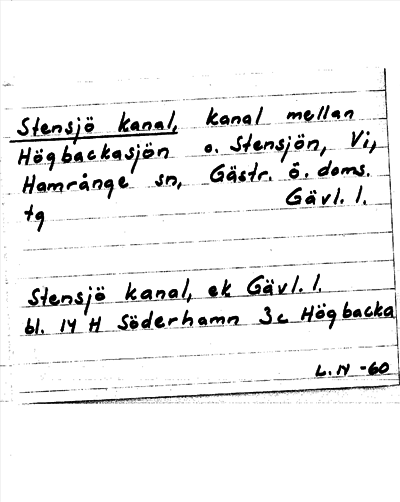 Stensjö kanal, kanal mellan
Högbackasjön o. Stensjön, Vi,
Hamrånge sn, Gästr. ö. doms.
tg Gävl. l.
Stensjö kanal, ek Gävl. l.
bl. 14 H Söderhamn 3c Högbacka
L. N -60